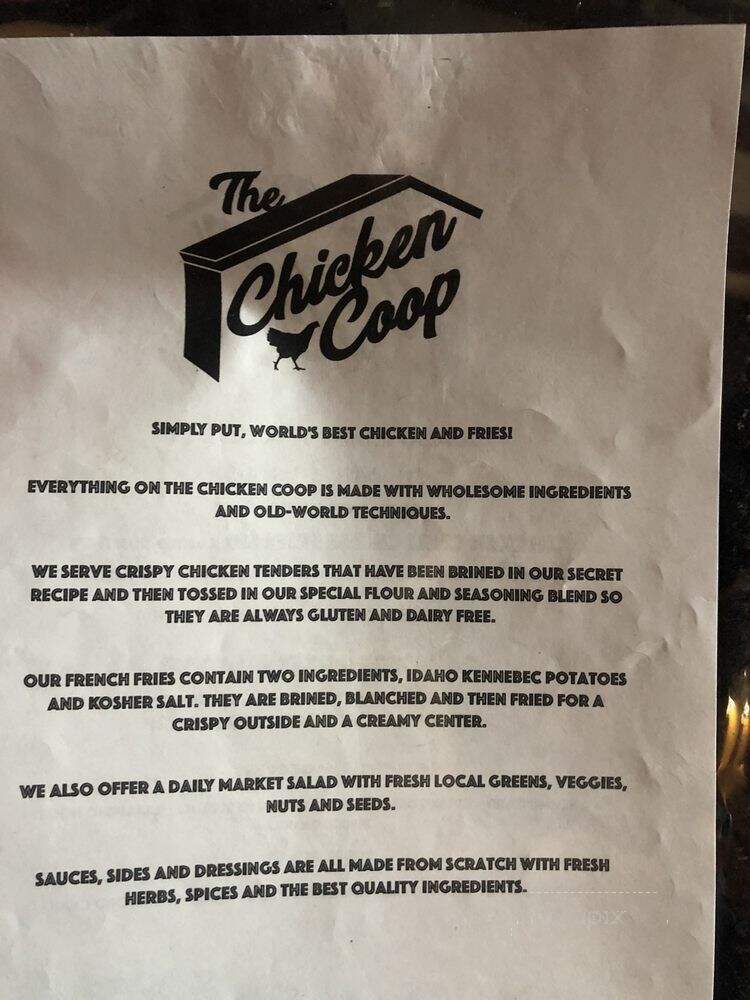 The
Chicken
Coop
SIMPLY PUT, WORLD'S BEST CHICKEN AND FRIES!
EVERYTHING ON THE CHICKEN COOP IS MADE WITH WHOLESOME INGREDIENTS
AND OLD-WORLD TECHNIQUES.
WE SERVE CRISPY CHICKEN TENDERS THAT HAVE BEEN BRINED IN OUR SECRET
RECIPE AND THEN TOSSED IN OUR SPECIAL FLOUR AND SEASONING BLEND SO
THEY ARE ALWAYS GLUTEN AND DAIRY FREE.
OUR FRENCH FRIES CONTAIN TWO INGREDIENTS, IDAHO KENNEBEC POTATOES
AND KOSHER SALT. THEY ARE BRINED, BLANCHED AND THEN FRIED FOR A
CRISPY OUTSIDE AND A CREAMY CENTER.
WE ALSO OFFER A DAILY MARKET SALAD WITH FRESH LOCAL GREENS, VEGGIES,
NUTS AND SEEDS.
SAUCES, SIDES AND DRESSINGS ARE ALL MADE FROM SCRATCH WITH FRESH
HERBS, SPICES AND THE BEST QUALITY INGREDIENTS.